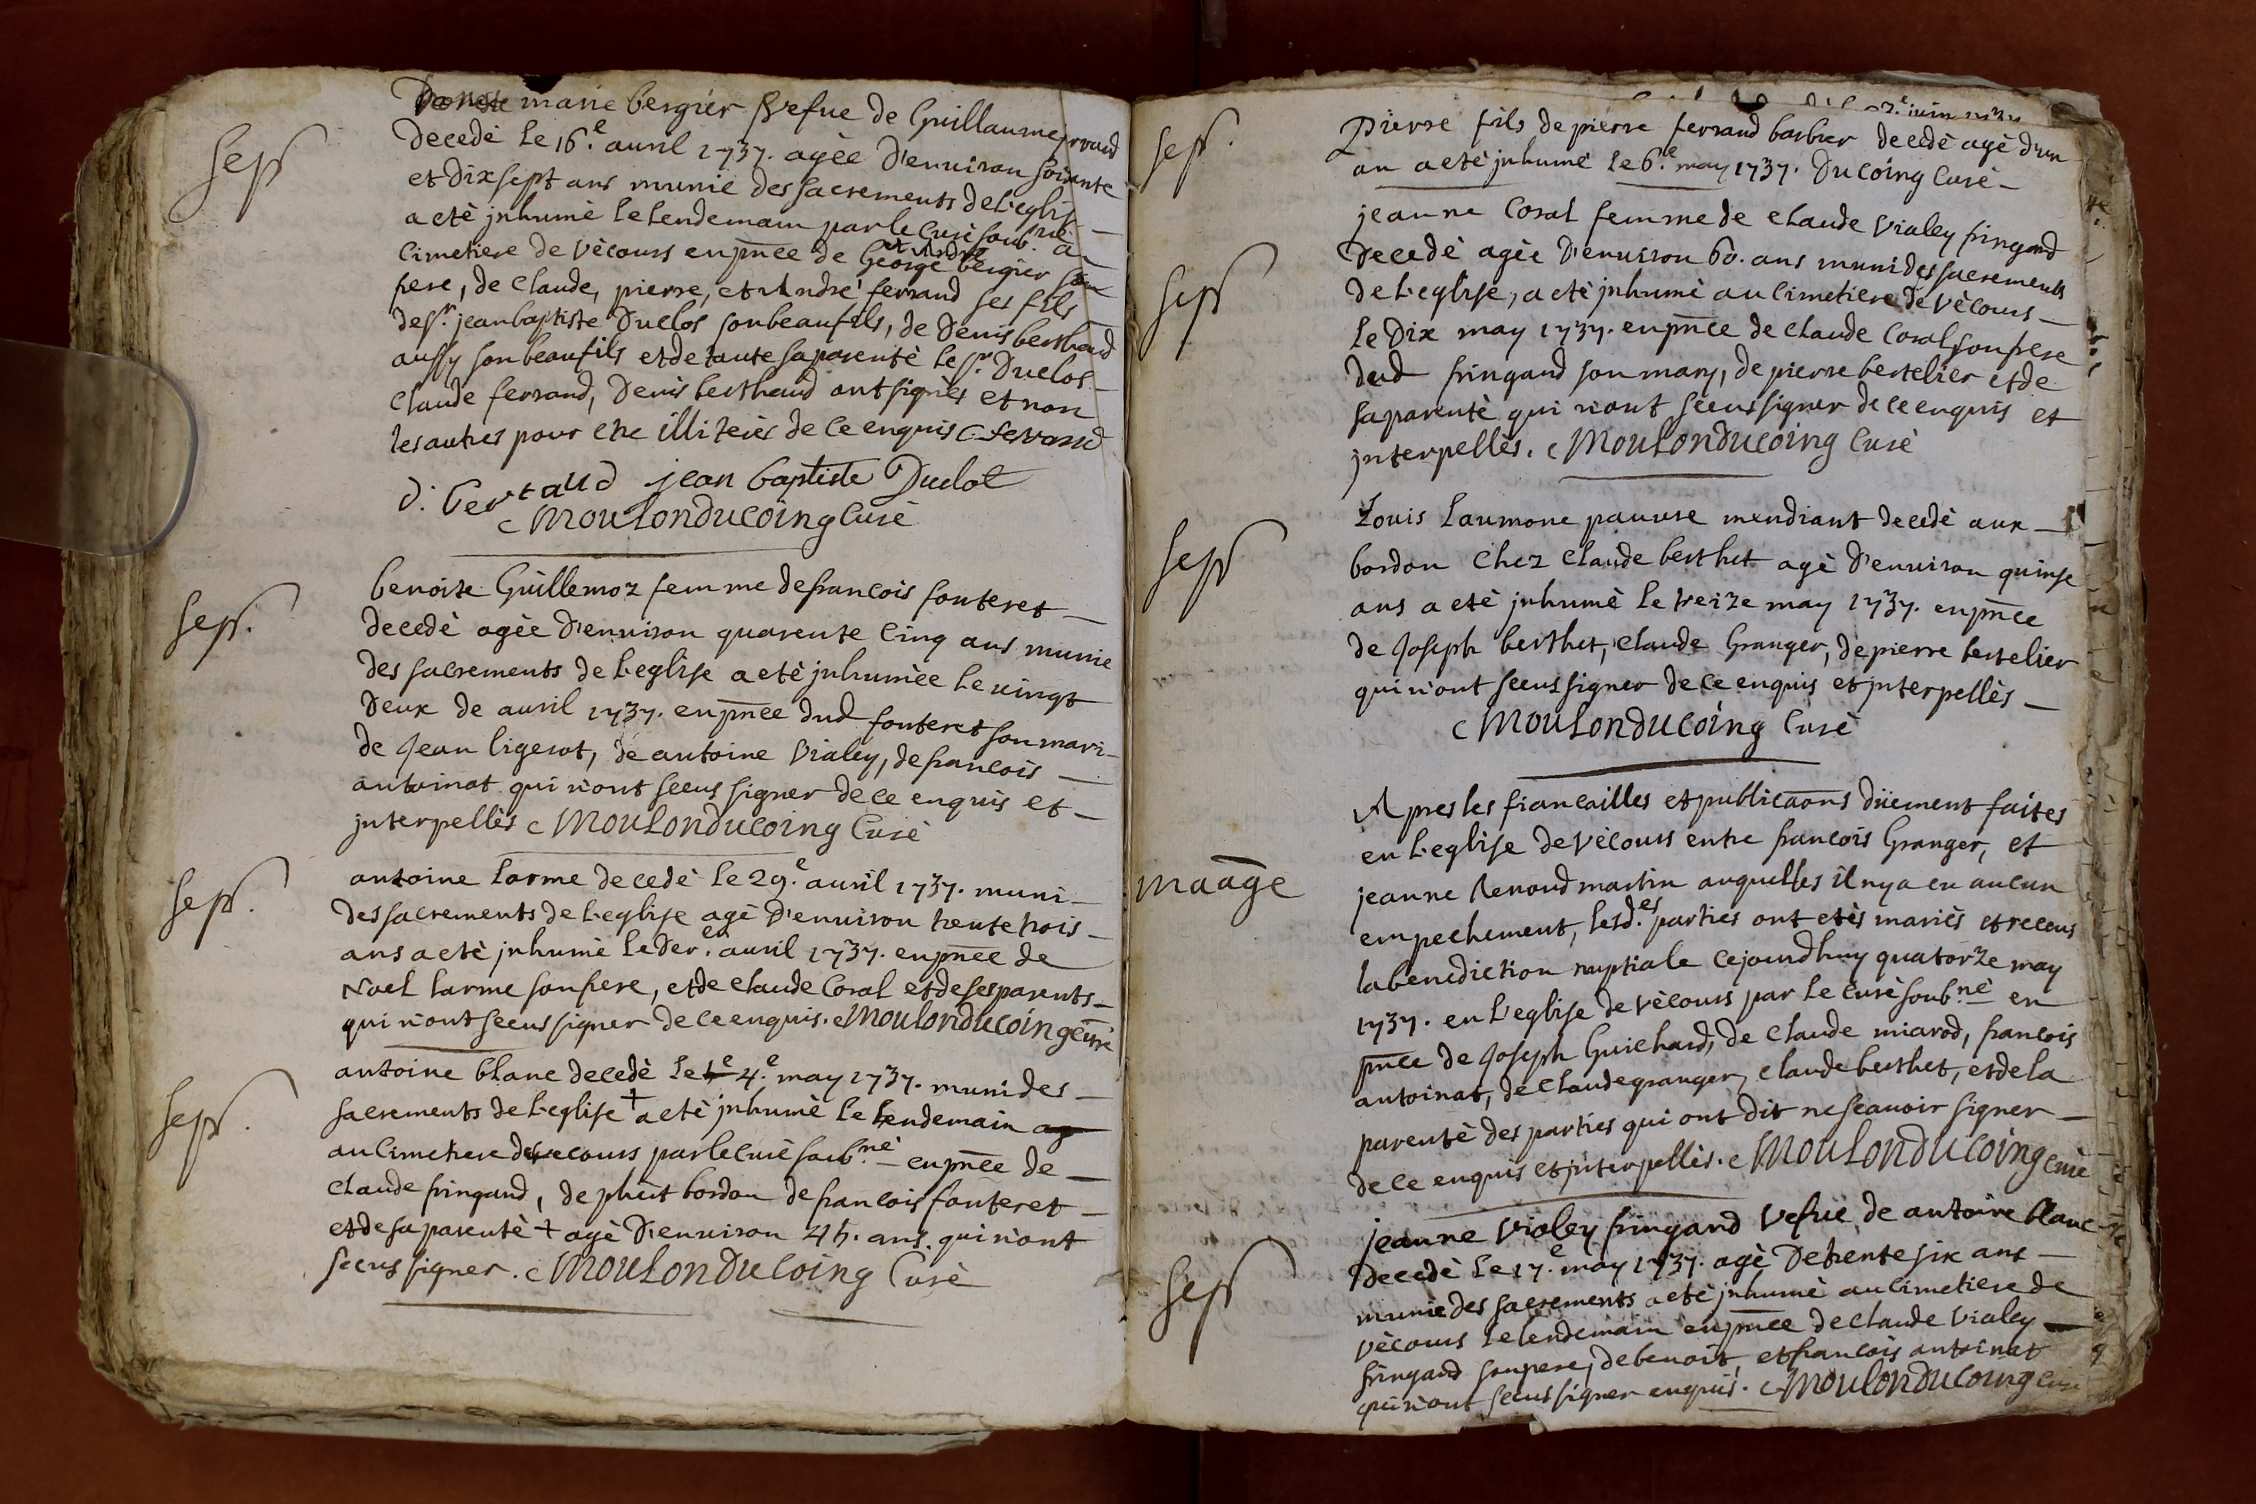 Sepr
marie bergier Vefue de Guillaume ferrand
decedé le 16.e auril 1737. agèe d'enuiron soixante
et dix sept ans munie des sacrements de l'eglise
a etè jnhumè le lendemain par le curè soub.nè au
cimetiere de vècours en pñce de George et Andrè bergier son
frere, de claude, pierre, et Andrè ferrand ses fils
de sr. jean baptiste Duclos son beaufils, de Denis berthaud
aussy son beau fils et de toute sa parentè le sr. Duclos
claude ferrand, Denis berthaud ont signès et non
les autres pour etre illiterès de ce enquis C ferrand
d. bertaud jean baptiste Duclot
C Moulonducoing Curè
Sepr.
benoite Guillemoz femme de francois fonteret
decedè agèe d'enuiron quarente cinq ans munie
des sacrements de l'eglise a etè jnhumèe le vingt
deux de auril 1737. en pñce dud fonteret son mari
de Jean ligerot, de antoine Vialey, de francois
antoinat qui n'ont sceus signer de ce enquis et
jnterpellès C Moulonducoing Curè
Sepr.
antoine larme decedè le 29.e auril 1737. muni
des sacrements de l'eglise agè d'enuiron trente trois
ans a etè jnhumè le der. en auril 1737. en pñce de
Noel larme son frere, et de claude Coral et de ses parents
qui n'ont sceus signer de ce enquis. C Moulonducoing curè
Sepr.
antoine blanc decedè le 4.e may 1737. muni des
sacrements de l'eglise + a etè jnhumè le lendemain
au cimetiere de vecours par le curè soub.nè en pñce de
claude fringand, de phèit bordon de francois fonteret
et de sa parentè + agè d'enuiron 45. ans. qui n'ont
sceus signer. C Moulonducoing Curè
Sepr.
Pierre fils de pierre ferrand barbier decedè agè d'un
an a etè jnhumè le 6.e may 1737. Ducoing Curè
Sepr
jeanne Coral femme de claude Vialey fringand
decedè agèe d'enuiron 60. ans muni des sacrements
de l'eglise, a etè jnhumè au cimetiere de vècours
le dix may 1737. en pñce de claude Coral son frere
dud fringand son mary, de pierre bertelier et de
sa parentè qui n'ont sceus signer de ce enquis et
jnterpellès. C Moulonducoing Curè
Sepr
Louis Laumone pauure mendiant decedè aux
bordon chez claude berthet agè d'enuiron quinse
ans a etè jnhumè le treize may 1737. en pñce
de Joseph berthet, claude Granger, de pierre bertelier
qui n'ont sceus signer de ce enquis et jnterpellès
C Moulonducoing Curè
maãge
Apres les fiancailles et publicaons düement faites
en l'eglise de vècours entre francois Granger, et
jeanne Renoud martin auquelles il n'y a eu aucun
empechement, lesd.es parties ont etès mariès et receus
la benediction nuptiale cejourdhuy quatorze may
1737. en l'eglise de vècours par le curè soub.nè en
pñce de Joseph Guichard, de claude miarod, francois
antoinat, de claude granger, claude berthet, et de la
parentè des parties qui ont dit ne scauoir signer
de ce enquis et jnterpellès. C Moulonducoing curè
Sepr
jeanne Vialey fringand Vefue de antoine blanc
decedè le 17.e may 1737. agè de trente six ans
munie des sacrements a etè jnhumè au cimetiere de
vècours le lendemain en pñce de claude Vialey
fringand son pere, de benoit, et francois antoinat
qui n'ont sceus signer enquis. C Moulonducoing